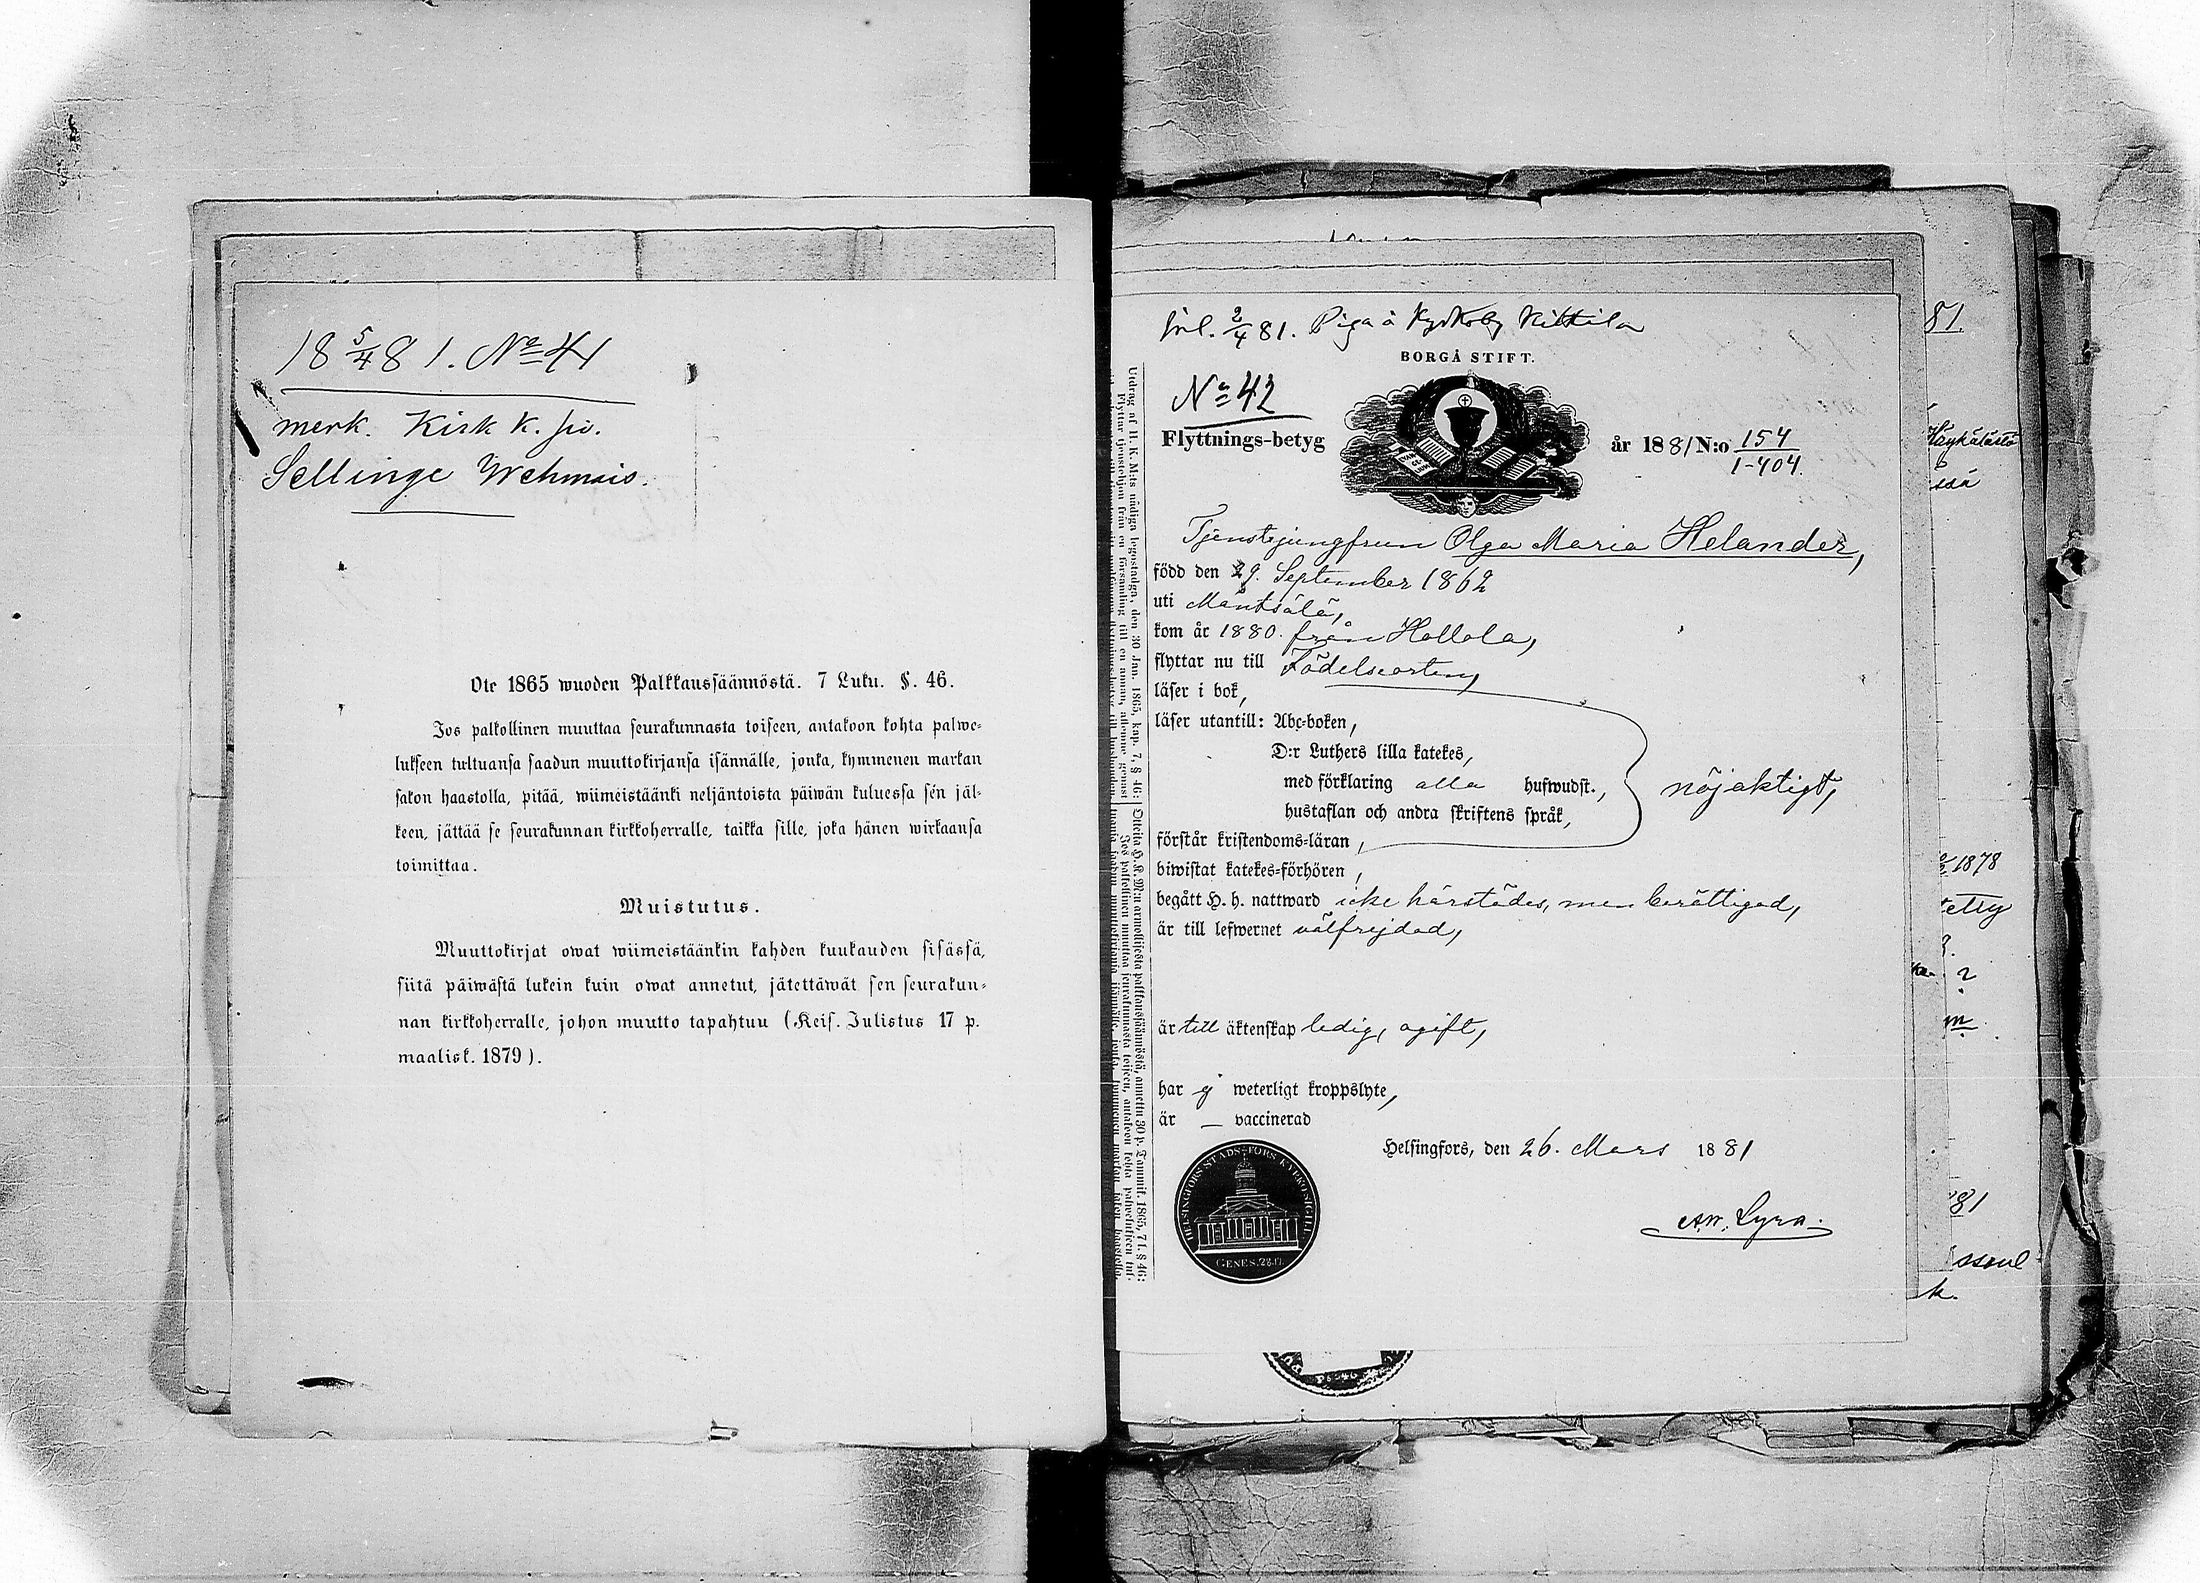 18 5/4 81. No 41
merk. Kirk k. siv.
Sellinge Wehmais.
Ote 1865 wuoden Palkkaussäännöstä. 7 Luku. §. 46.
Jos palkollinen muuttaa seurakunnasta toiseen, antakoon kohta palwe-
lukseen tultuansa saadun muuttokirjansa isännälle, jonka, kymmenen markan
sakon haastolla, pitää, wiimeistäänki neljäntoista päiwän kuluessa sen jäl-
keen, jättää se seurakunnan kirkkoherralle, taikka sille, joka hänen wirkaansa
toimittaa.
Muistutus.
Muuttokirjat owat wiimeistäänkin kahden kuukauden sisässä,
siitä päiwästä lukein kuin owat annetut, jätettäwät sen seurakun-
nan kirkkoherralle, johon muutto tapahtuu (Keis. Julistus 17 p.
maalisk. 1879).
inl. 2/4 81. Piga å Kyrkoby Kittilä
BORGÅ STIFT.
No 42
Flyttnings-betyg år 1881 N:o 154
1-404.
Tjenstejungfrun Olga Maria Helander,
född den 29. September 1862
uti Mäntsälä,
kom år 1880. från Hollola,
flyttar nu till Födelseorten,
läser i bok,
läser utantill: Abc-boken,
D:r Luthers lilla katekes,
med förklaring alla hufwudst.,
hustaflan och andra skriftens språk,
nöjaktigt,
förstår kristendoms-läran,
biwistat katekes-förhören,
begått H. h. nattward icke härstädes, men berättigad,
är till lefwernet välfrejdad,
är till äktenskap ledig, ogift,
har ej weterligt kroppslyte,
är — vaccinerad
Helsingfors, den 26. Mars 1881
AW. Lyra.
HELSINGFORS STADS-FÖRS KYRKOSIGILL
GENES. 28.17.
Utdrag af H. K. M:ts nådiga legostadga, den 30 Jan. 1865, kap. 7, § 46:
81.
1878
81
k.